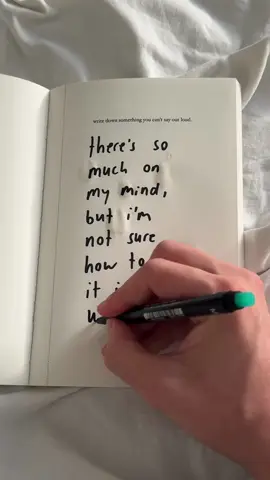 write down something you can't say out loud.
there's so
much on
my mind,
but i'm
not sure
how to
it